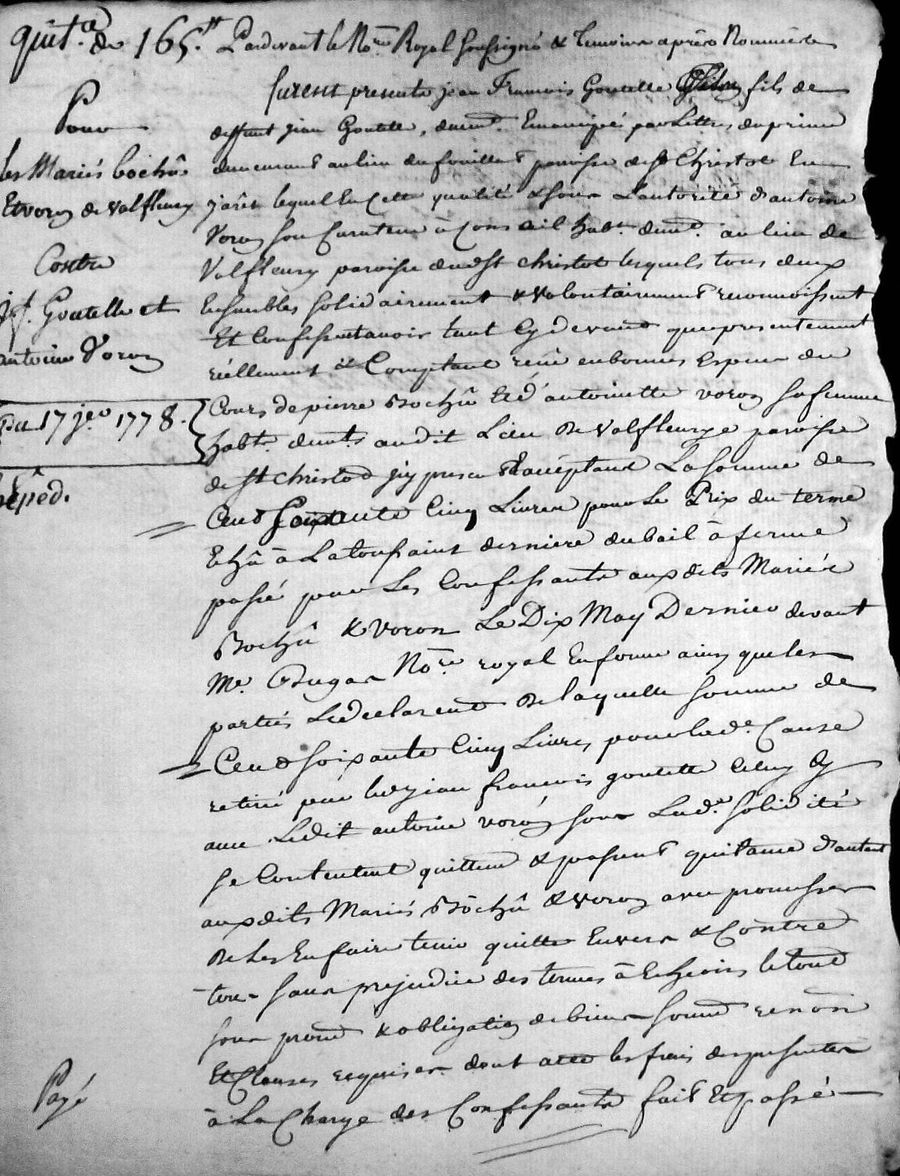 quit.ce de 165.tt
Pour
les Mariés bochû
Et voron de valfleury
Contre
j. f. Goutelle et
antoine Voron
Du 17 j.er 1778.
expéd.
Payé
Pardevant le No.re Royal soussigné & temoins après Nommés
furent presents jean Francois Goutelle fils de
deffunt jean Goutelle, Emancipé par Lettres du prince
demeurant au lieu du fouillet paroisse de St Christot En
jarêt lequel En cette qualité & sous L'autorité d'antoine
Voron son Curateur à Conseil hab.t dem.t au lieu de
Valfleury paroisse dud. St christot lesquels tous deux
Ensembles solidairement & volontairement reconnoissent
Et Confessent avoir tant Cy devant que presentement
réellement & Comptant reçû en bonnes Especes du
Cours de pierre Bochû et d'antoinette voron sa femme
hab.ts dem.ts audit Lieu de valfleurye paroisse
de St christod icy presents & acceptans La somme de
Cent soixante Cinq Livres pour Le Prix du terme
Echû à La toussaint derniere du bail à ferme
passé par Les Confessants auxdits Mariés
Bochû & voron Le Dix May Dernier devant
Me. Dugas No.re royal En forme ainsy que les
parties Le declarent De laquelle somme de
Cent soixante Cinq Livres pour lad.e Cause
retiré par led. jean francois goutelle
avec Ledit antoine voron sous Lad.e solidité
se Contentent quittent & passent quitance d'autant
auxdits Mariés Bochû & voron avec promesses
de Les En faire tenir quitte Envers & Contre
tous sans prejudice des termes à Echeoir le tout
sous prom. & obligation de biens soum. renon
Et Clauses requises dont acte les frais des presentes
à La Charge des Confessants fait Et passé